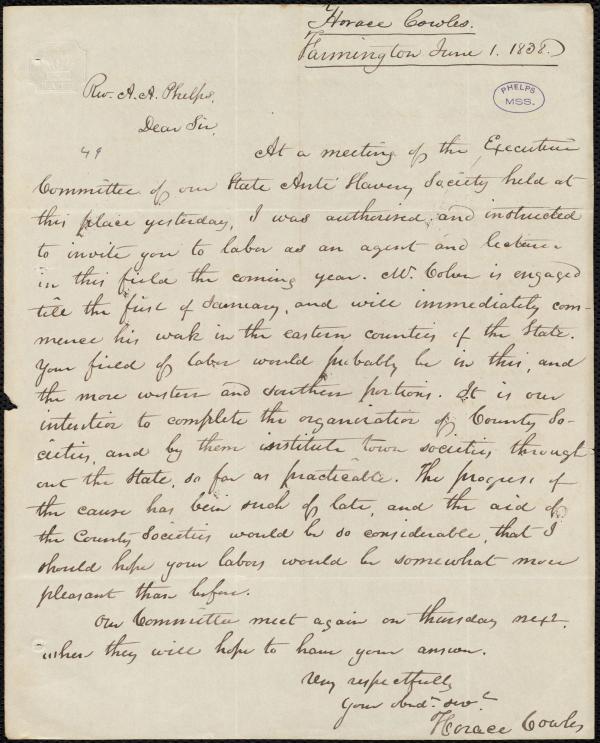 Horace Cowles.
Farmington June 1. 1838.
PHELPS
MSS.
Rev. A. A. Phelps,
Dear Sir,
49
At a meeting of the Executive
Committee of our State Anti Slavery Society held at
this place yesterday, I was authorised and instructed
to invite you to labor as an agent and lecturer
in this field the coming year. Mr. Colver is engaged
till the first of January, and will immediately com-
mence his work in the eastern counties of the State.
Your field of labor would probably be in this, and
the more western and southern portions. It is our
intention to complete the organization of County So-
cieties, and by them institute town societies through-
out the State, so far as practicable. The progress of
the cause has been such of late, and the aid of
the County Societies would be so considerable, that I
should hope your labors would be somewhat more
pleasant than before.
Our Committee meet again on thursday next,
when they will hope to have your answer.
Very respectfully
Your obdt. servt.
Horace Cowles